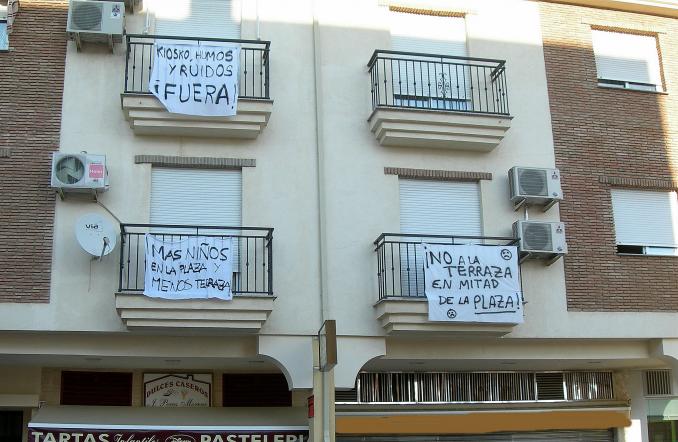 KIOSKO, HUMOS
Y RUIDOS
¡FUERA!
MAS NIÑOS
EN LA PLAZA Y
MENOS TERRAZA
¡NO A LA
TERRAZA
EN MITAD
DE LA PLAZA!
via
Haier
DULCES CASEROS
J. Perez Moreno
TARTAS Infantiles PASTELERI